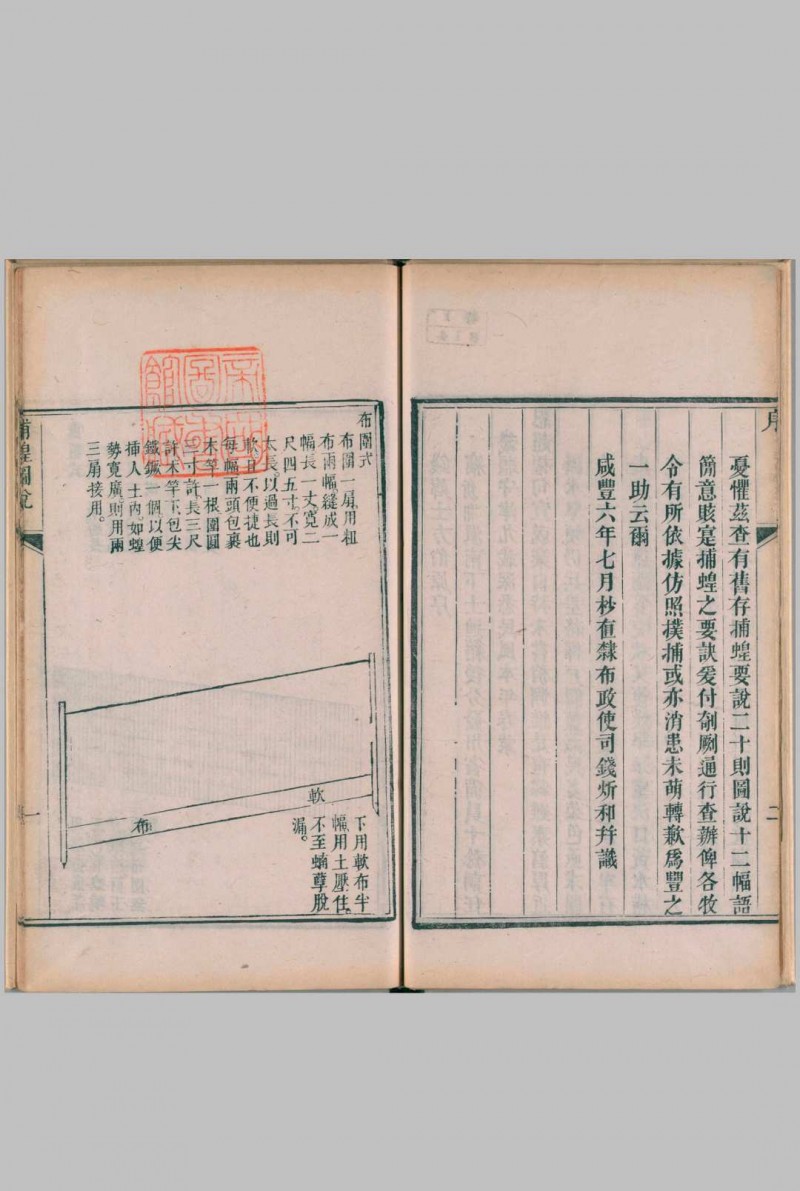 序
憂懼茲查有舊存捕蝗要說二十則圖說十二幅語
簡意賅寔捕蝗之要訣爰付剞劂通行查辦俾各牧
令有所依據仿照撲捕或亦消患未萌轉歉爲豐之
一助云爾
咸豐六年七月杪直隸布政使司錢炘和幷識
二
布圍式
布圍一扇用粗
布兩幅縫成一
幅長一丈寬二
尺四五寸不可
太長以過長則
軟且不便捷也
每幅兩頭包裹
木竿一根圍圓
三寸許長三尺
許木竿下包尖
鐵鐝一個以便
揷入土內如蝗
勢寬廣則用兩
三扇接用。
軟
布
下用軟布半
幅用土壓住。
不至蝻孽脫
漏。
捕蝗圖說
一